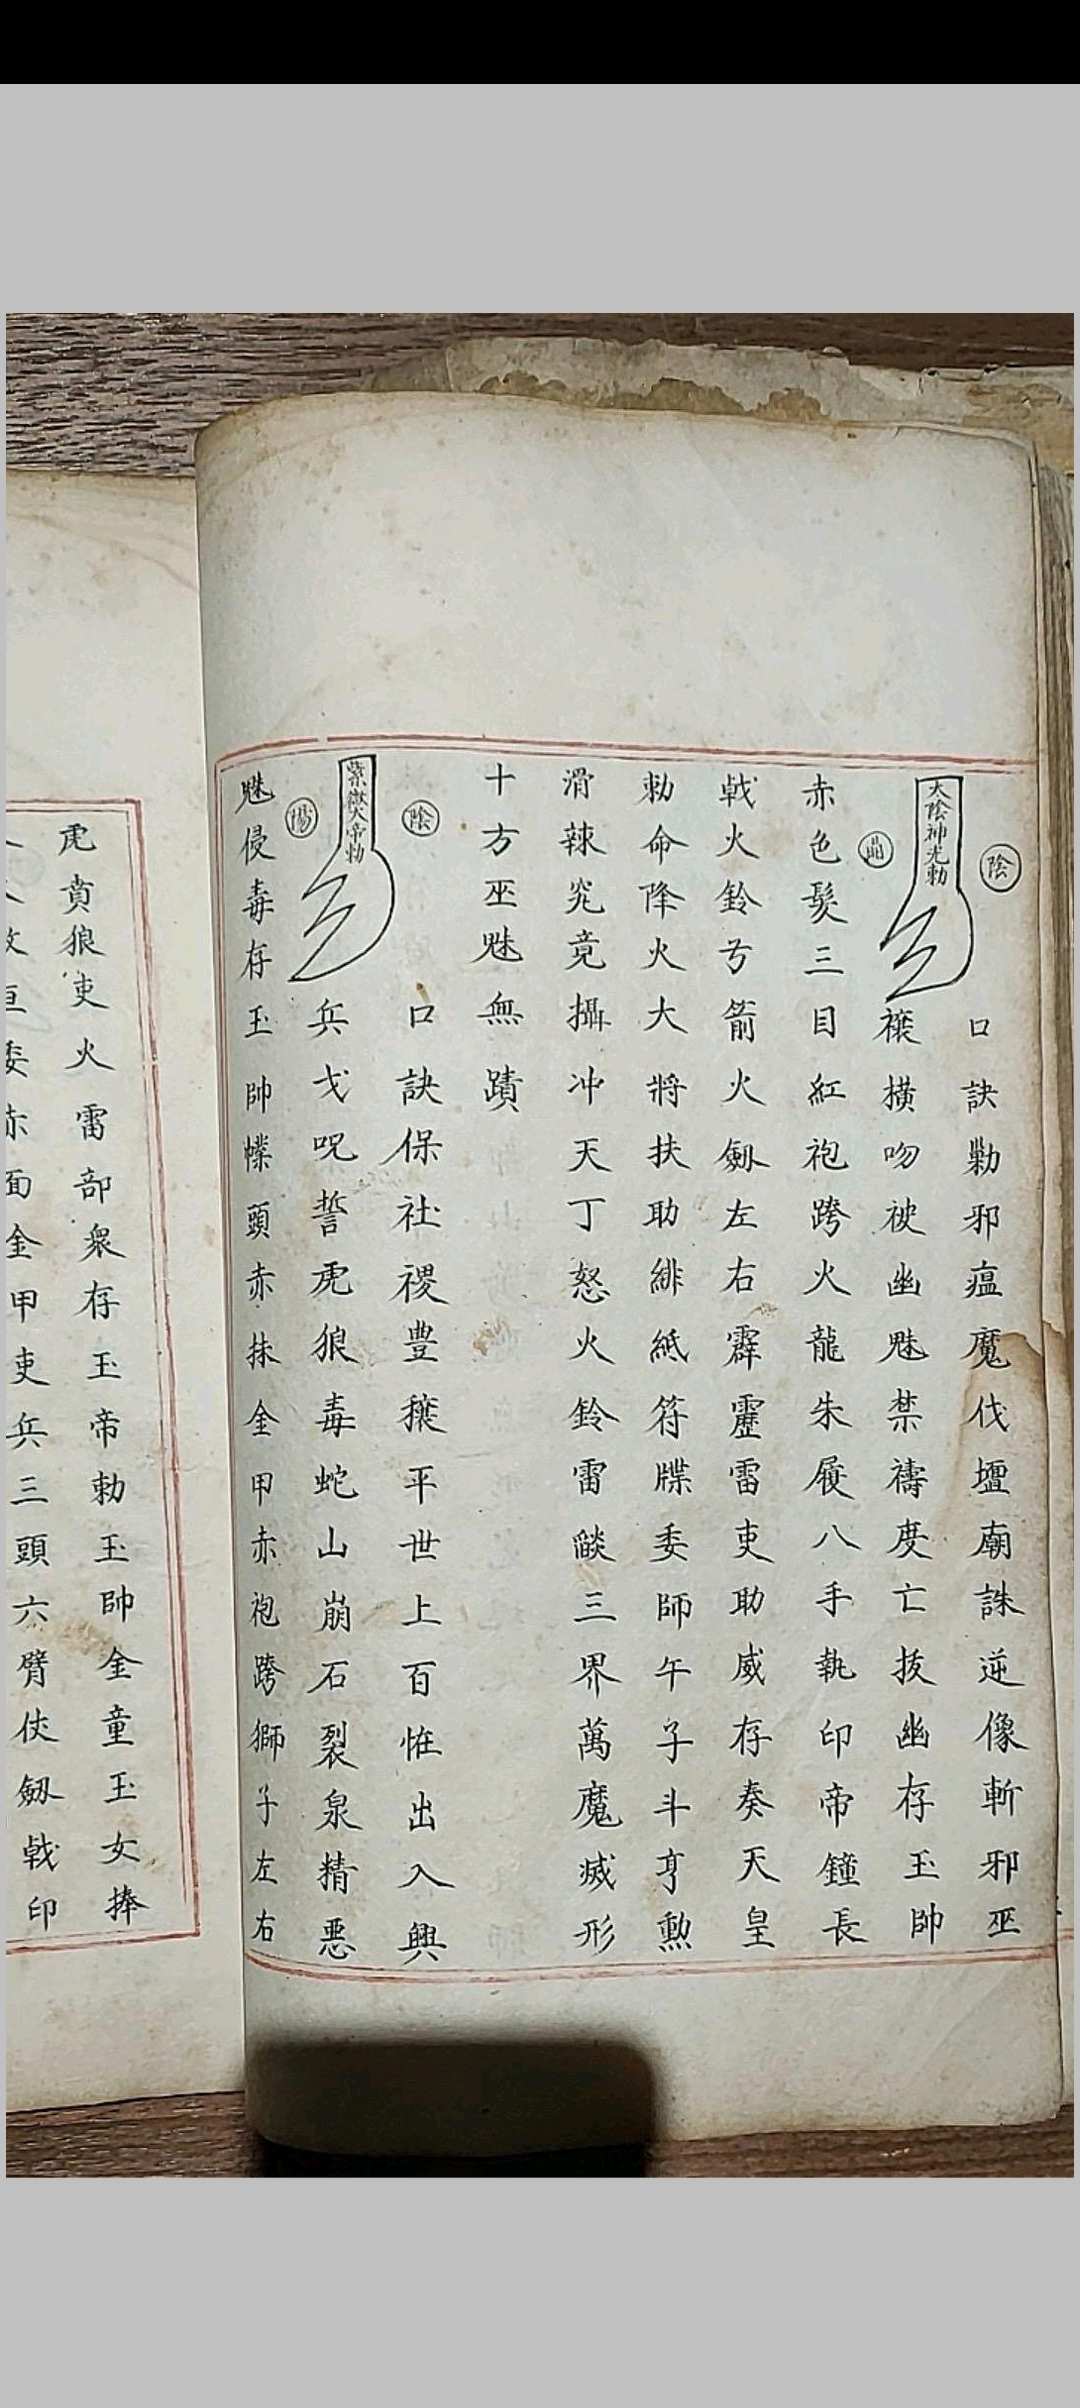 陰
太陰神光勅
晶
口訣勦邪瘟魔伐壇廟誅逆像斬邪巫
禳橫吻被幽魅禁禱度亡拔幽存玉帥
赤色髮三目紅袍跨火龍朱履八手執印帝鐘長
戟火鈴弓箭火劔左右霹靂雷吏助威存奏天皇
勅命降火大將扶助緋紙符牒委師午子斗亨勲
滑辣究竟攝冲天丁怒火鈴雷燄三界萬魔滅形
十方巫魅無蹟
陰
紫微大帝勅
陽
口訣保社稷豊穰平世上百恠出入興
兵戈呪誓虎狼毒蛇山崩石裂泉精悪
魅侵毒存玉帥幞頭赤抹金甲赤袍跨獅子左右
虎賁狼吏火雷部衆存玉帝勅玉帥金童玉女捧
委赤面金甲吏兵三頭六臂伏劔戟印